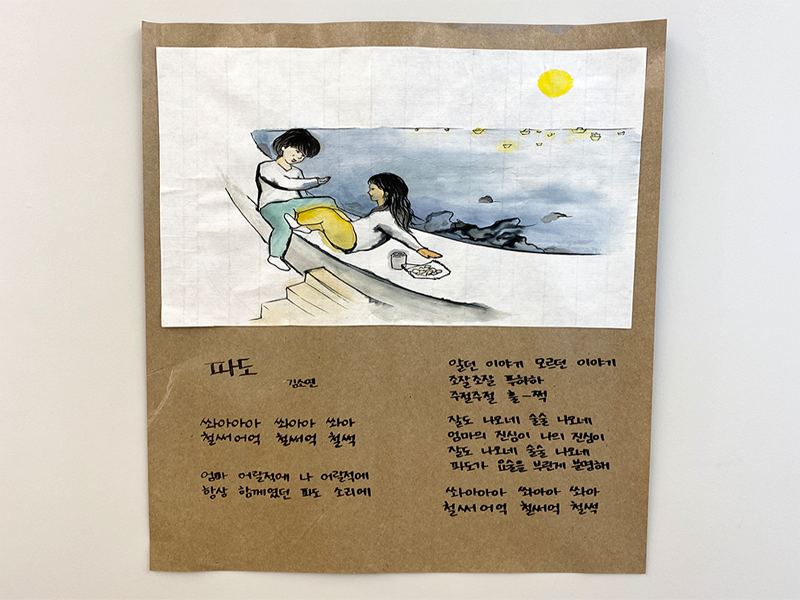 파도
김소연
쏴아아아 쏴아아 쏴아
철써어억 철써억 철썩
엄마 어릴적에 나 어릴적에
항상 함께였던 파도 소리에
알던 이야기 모르던 이야기
조잘조잘 푸하하
주절주절 훌-쩍
잘도 나오네 술술 나오네
엄마의 진심이 나의 진심이
잘도 나오네 술술 나오네
파도가 요술을 부린게 분명해
쏴아아아 쏴아아 쏴아
철써어억 철써억 철썩